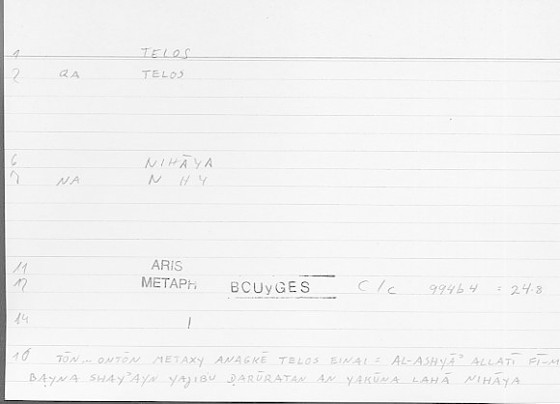 1 TELOS
2 QA TELOS
6 NIHĀYA
7 NA N H Y
11 ARIS
12 METAPH BCUyGES C/c 994b4 = 24.8
14 1
16 TŌN... ONTŌN METAXY ANAGKĒ TELOS EINAI = AL-ASHYĀʾ ALLATĪ FĪ-M
BAYNA SHAYʾAYN YAJIBU ḌARŪRATAN AN YAKŪNA LAHĀ NIHĀYA